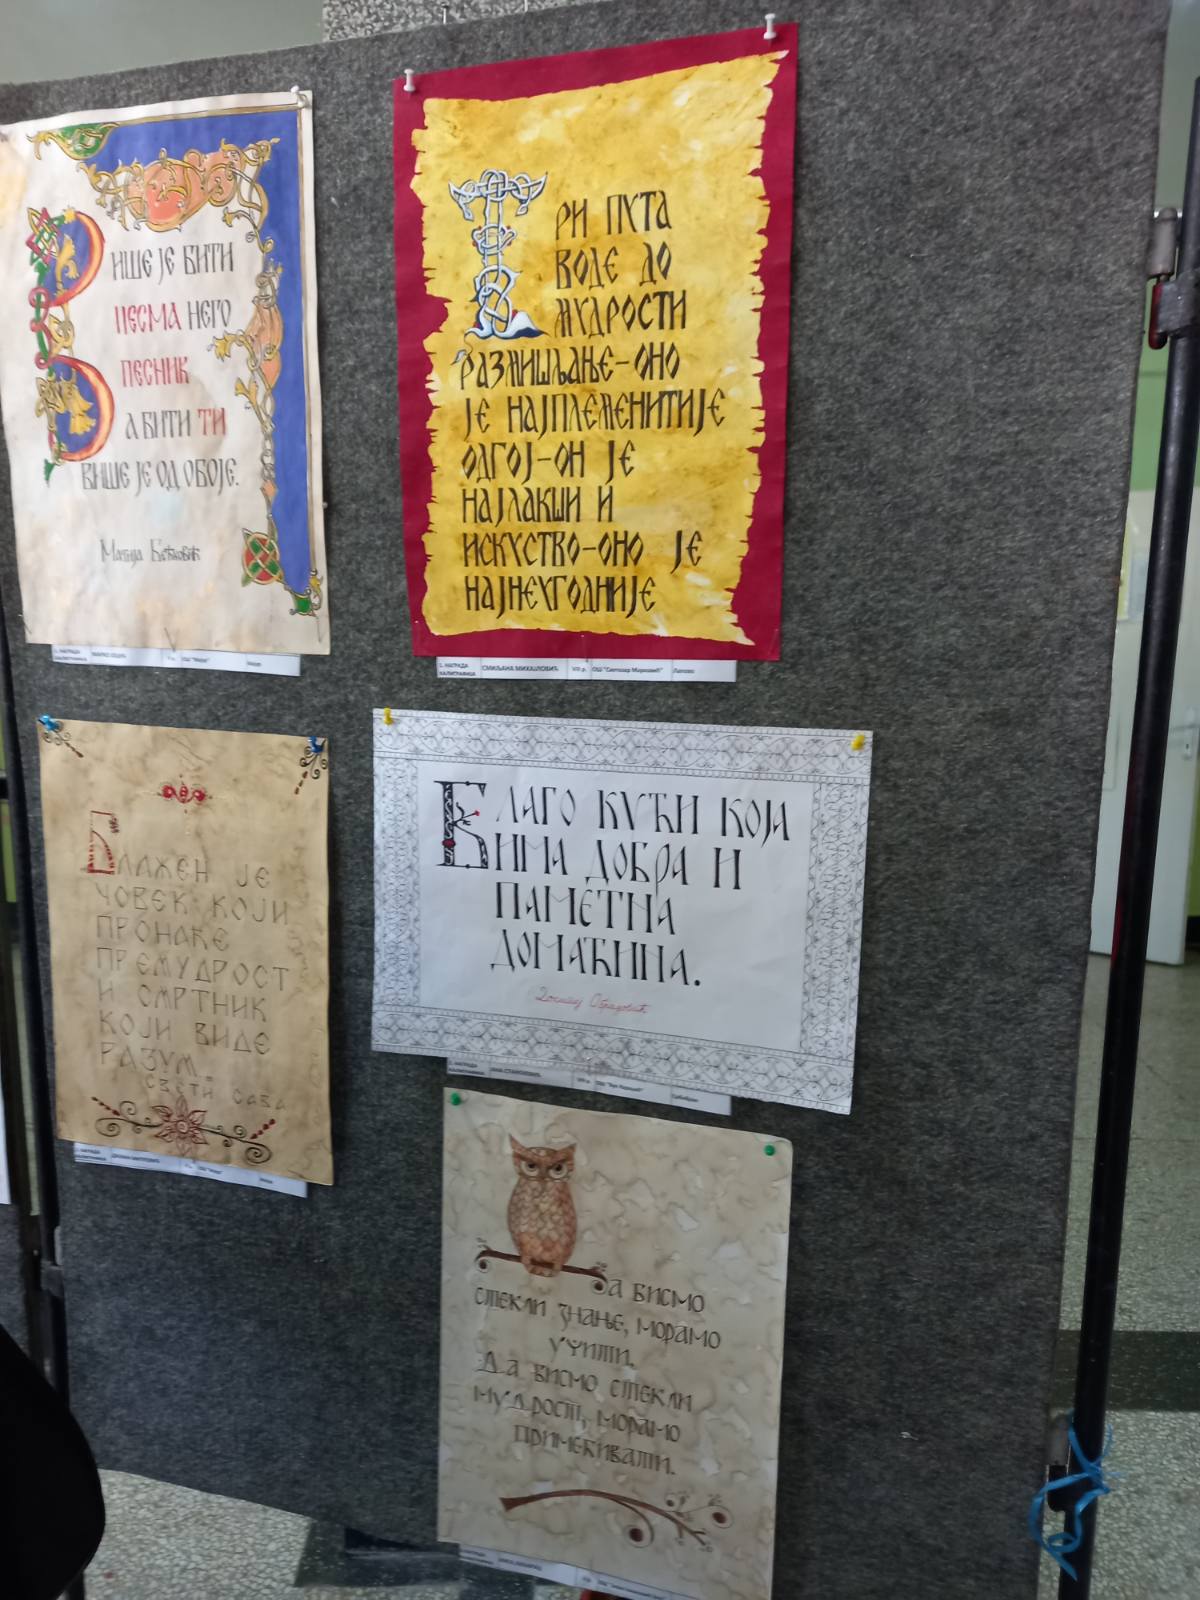 ВИШЕ ЈЕ БИТИ
ПЕСМА НЕГО
ПЕСНИК
А БИТИ ТИ
ВИШЕ ЈЕ ОД ОБОЈЕ.
Матија Бећковић
ТРИ ПУТА
ВОДЕ ДО
МУДРОСТИ
РАЗМИШЉАЊЕ-ОНО
ЈЕ НАЈПЛЕМЕНИТИЈЕ
ОДГОЈ-ОН ЈЕ
НАЈЛАКШИ И
ИСКУСТВО-ОНО ЈЕ
НАЈНЕУГОДНИЈЕ
1. НАГРАДА КАЛИГРАФИЈА
СМИЉАНА МИХАЈЛОВИЋ VII р. ОШ "Светозар Марковић" Лапово
БЛАЖЕН ЈЕ
ЧОВЕК КОЈИ
ПРОНАЂЕ
ПРЕМУДРОСТ
И СМРТНИК
КОЈИ ВИДЕ
РАЗУМ
СВЕТИ САВА
БЛАГО КУЋИ КОЈА
ИМА ДОБРА И
ПАМЕТНА
ДОМАЋИНА.
Доситеј Обрадовић
ДА БИСМО
СТЕКЛИ ЗНАЊЕ, МОРАМО
УЧИТИ.
ДА БИСМО СТЕКЛИ
МУДРОСТ, МОРАМО
ПРИМЕЋИВАТИ.